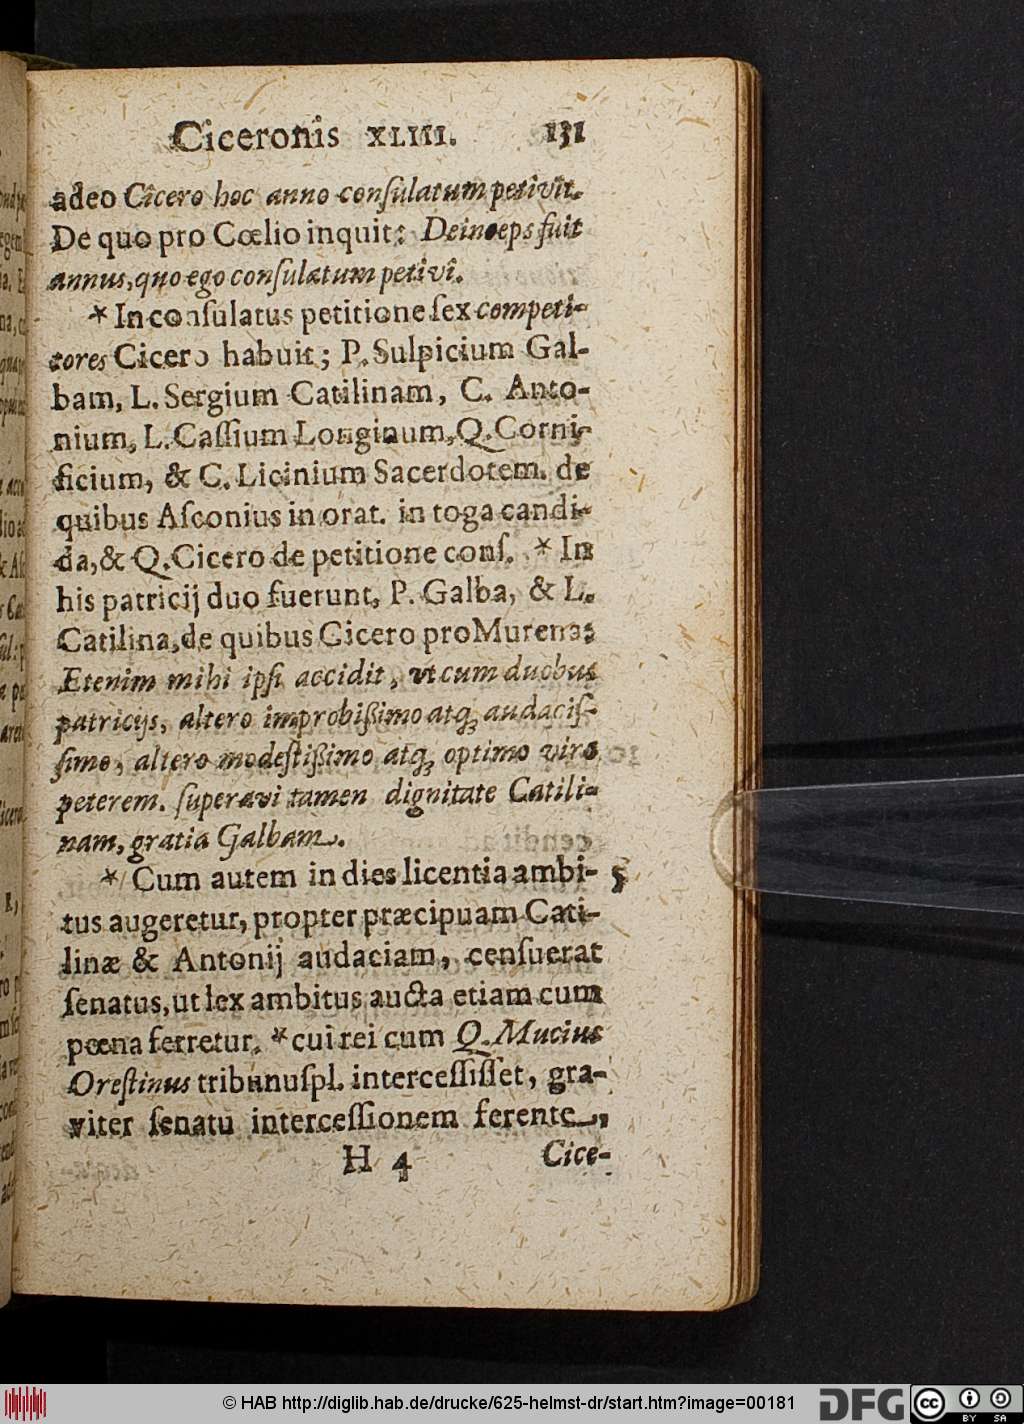 Ciceronis XLIII. 131
adeo Cicero hoc anno conſulatum petivit.
De quo pro Cœlio inquit: Deinceps fuit
annus, quo ego conſulatum petivi.
* In conſulatus petitione ſex competi-
tores Cicero habuit; P. Sulpicium Gal-
bam, L. Sergium Catilinam, C. Anto-
nium, L. Caſſium Longinum, Q. Corni-
ficium, & C. Licinium Sacerdotem. de
quibus Aſconius in orat. in toga candi-
da, & Q. Cicero de petitione conſ. * In
his patricij duo fuerunt, P. Galba, & L.
Catilina, de quibus Cicero pro Murena:
Etenim mihi ipſi accidit, vt cum duobus
patricijs, altero improbißimo atq; audaciſ-
ſimo, altero modeſtißimo atq; optimo viro
peterem. ſuperavi tamen dignitate Catili-
nam, gratia Galbam.
* Cum autem in dies licentia ambi- 5
tus augeretur, propter præcipuam Cati-
linæ & Antonij audaciam, cenſuerat
ſenatus, ut lex ambitus aucta etiam cum
pœna ferretur. * cui rei cum Q. Mucius
Oreſtinus tribunuſpl. interceſſiſſet, gra-
viter ſenatu interceſſionem ferente,
H 4 Cice-
© HAB http://diglib.hab.de/drucke/625-helmst-dr/start.htm?image=00181
DFG
cc BY SA